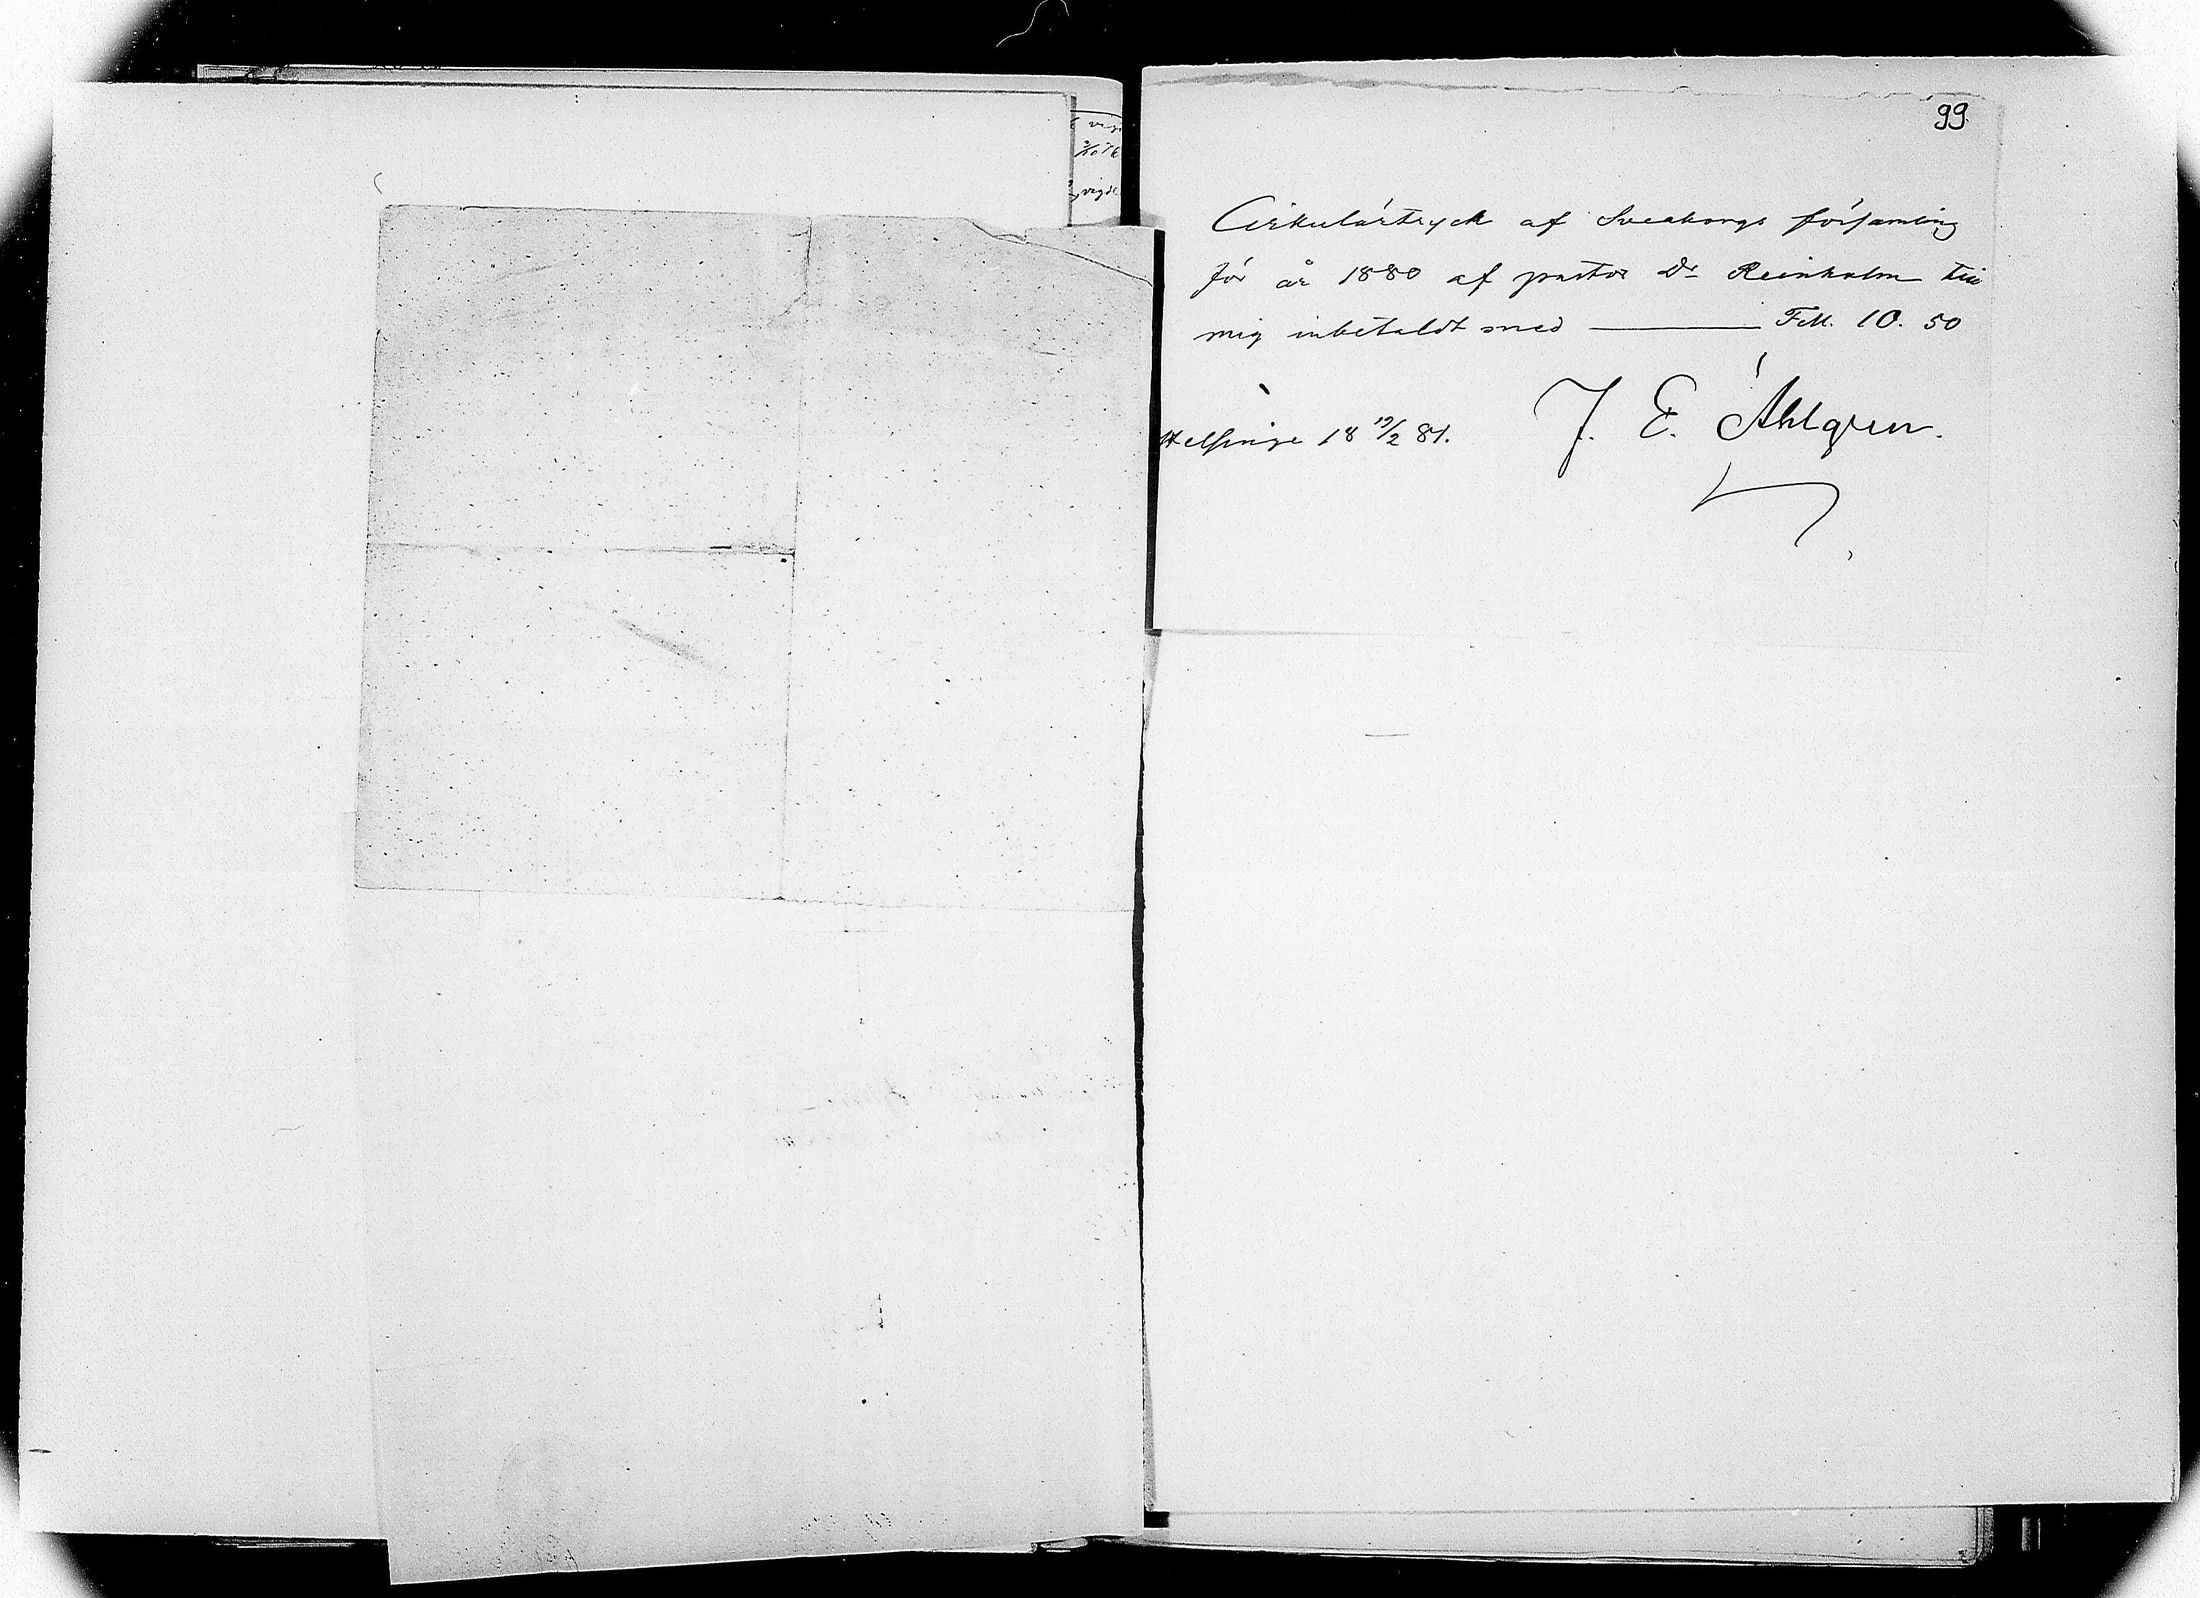 99.
Cirkulärtryck af Sveaborgs församling
för år 1880 af pastor Dr Reinholm till
mig inbetaldt med ——— FM. 10. 50
Helsinge 18 19/2 81.
J. E. Åhlgren.